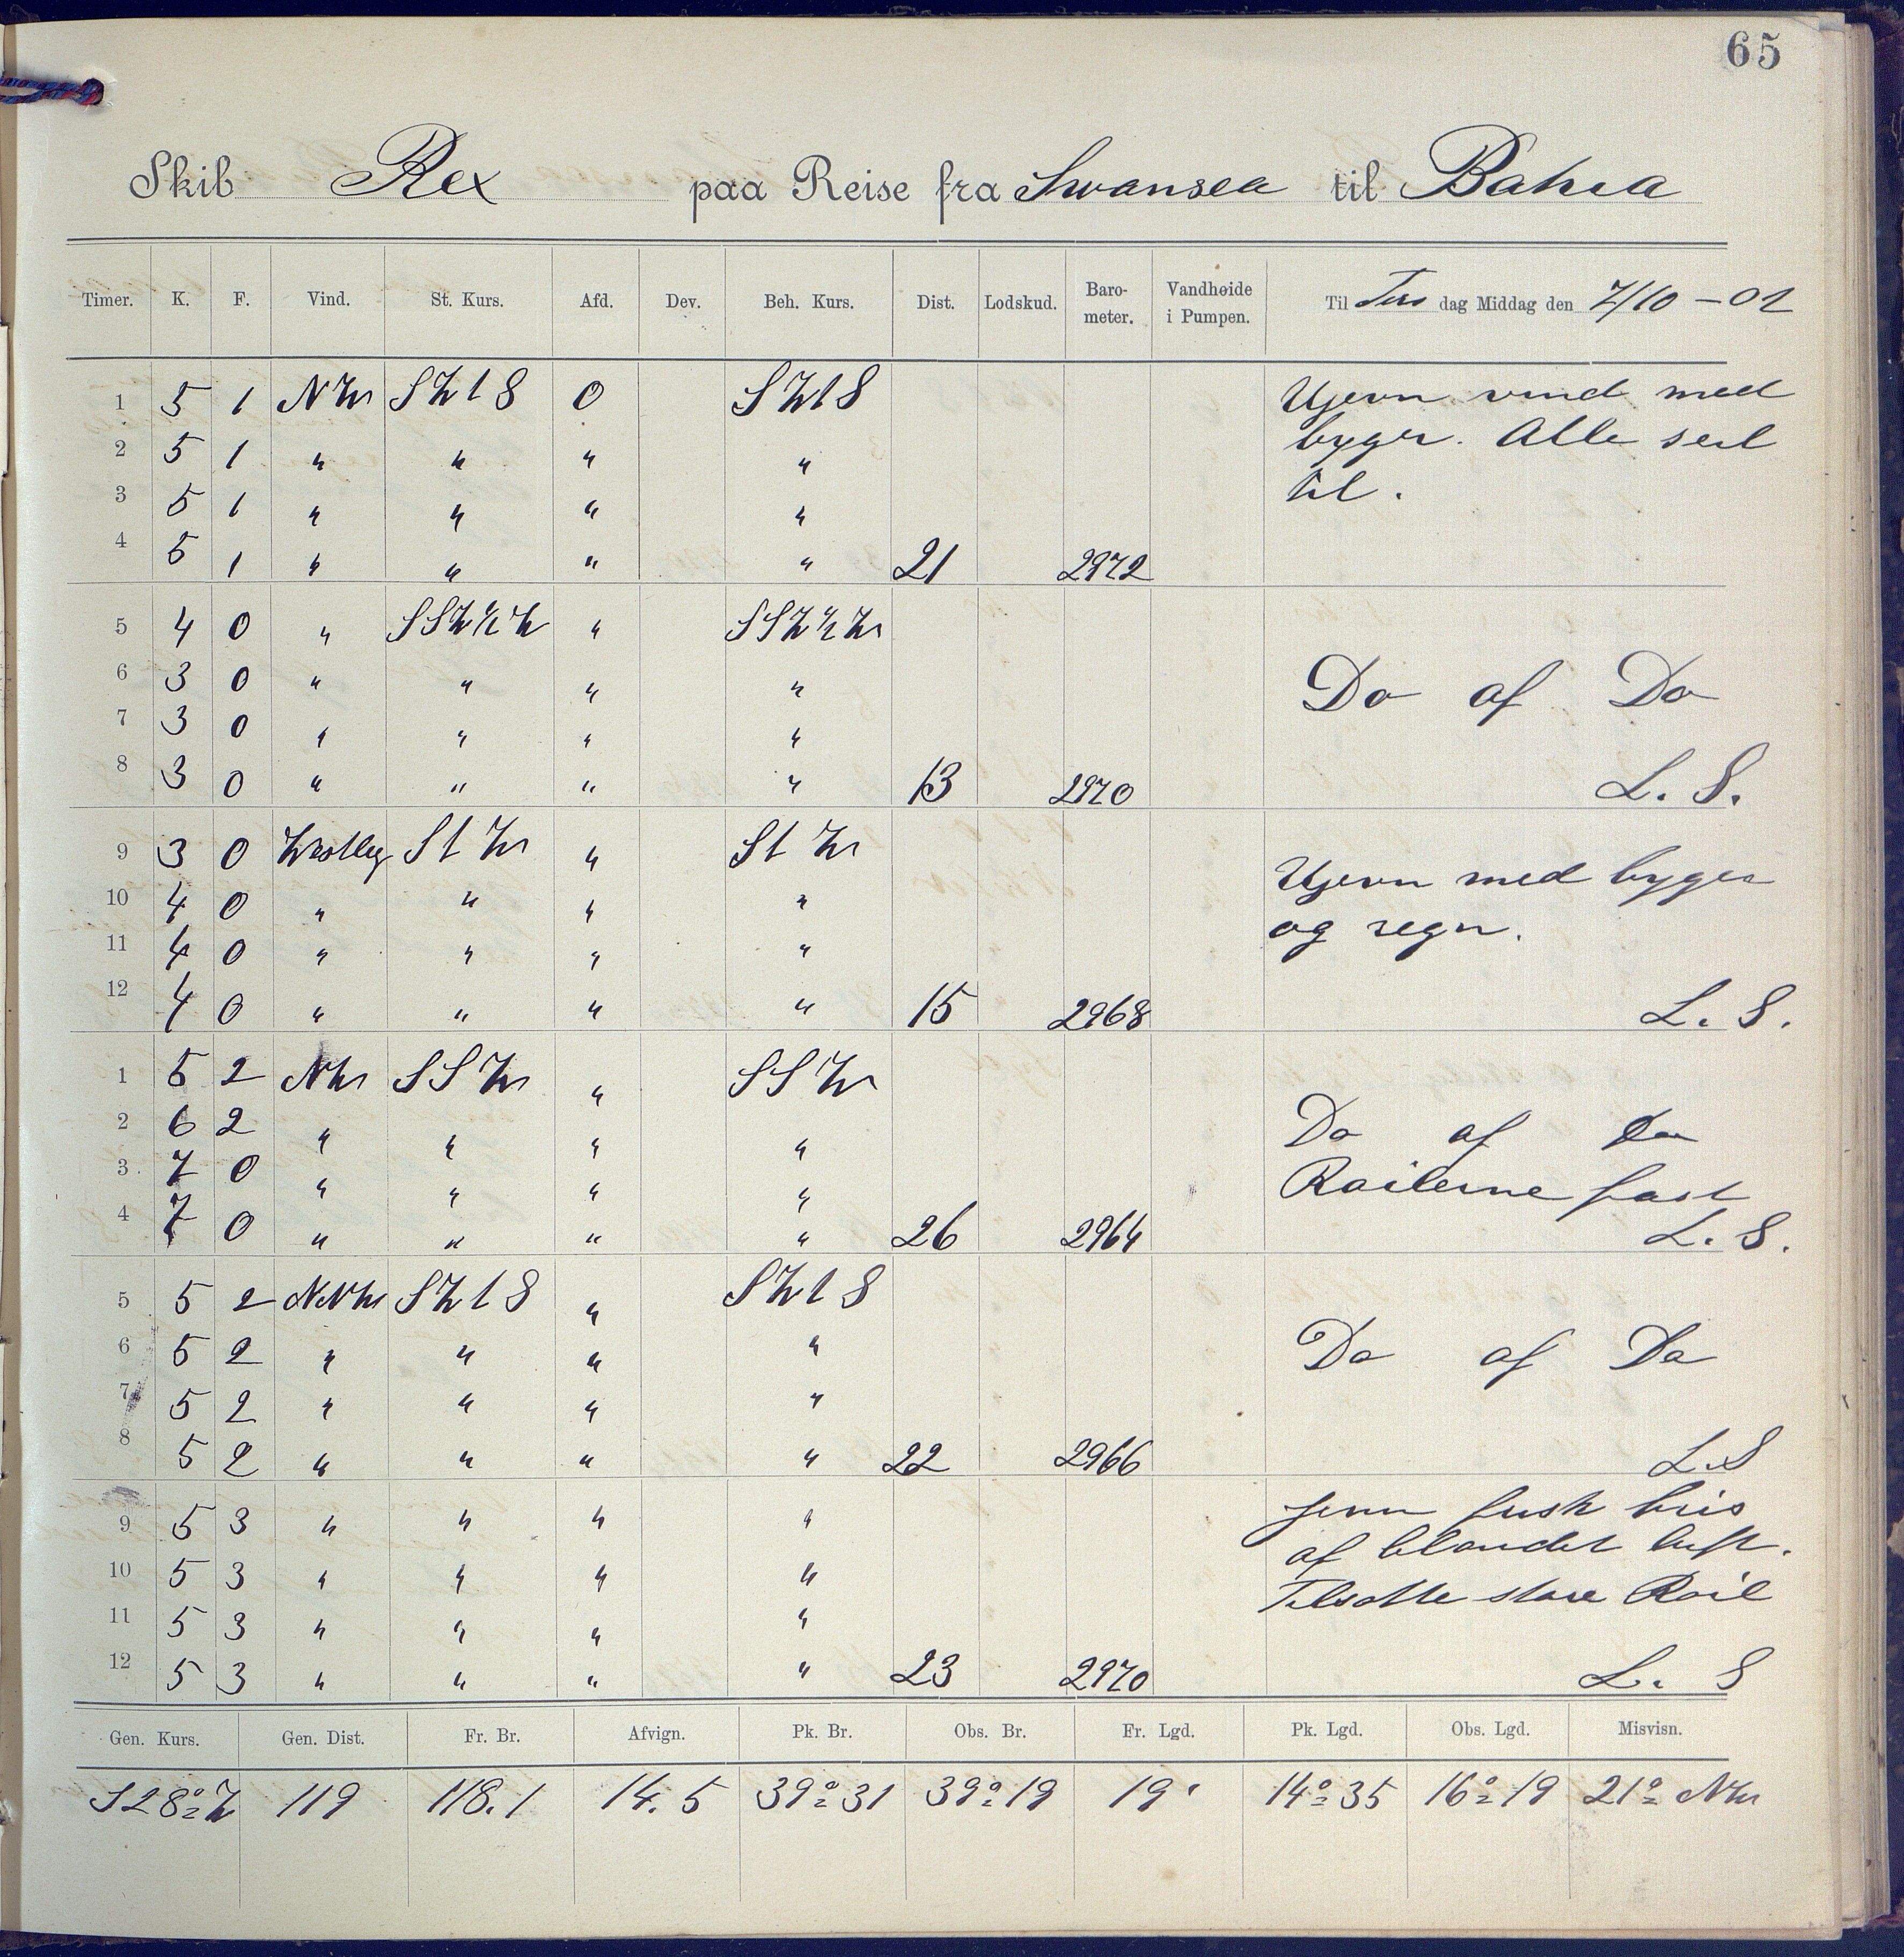 65
Skib Rex paa Reise fra Swansea til Bahia
Timer. K. F. Vind. St. Kurs. Afd. Dev. Beh. Kurs. Dist. Lodskud. Baro-meter. Vandhøide i Pumpen. Til Tirs dag Middag den 7/10 - 02
1 5 1 NW SWtS 0 SWtS Ujevn vind med
2 5 1 " " " " byger. Alle seil
3 5 1 " " " " til.
4 5 1 " " " " 21 2972
5 4 0 " SSW½W " SSW½W
6 3 0 " " " " Do af Do
7 3 0 " " " "
8 3 0 " " " " 13 2970 L. S.
9 3 0 Westleg StW " StW Ujevn med byger
10 4 0 " " " " og regn.
11 4 0 " " " "
12 4 0 " " " " 15 2968 L. S.
1 5 2 NW SSW " SSW
2 6 2 " " " " Do af Do
3 7 0 " " " " Roilerne fast
4 7 0 " " " " 26 2964 L. S.
5 5 2 NNW SWtS " SWtS
6 5 2 " " " " Do af Do
7 5 2 " " " "
8 5 2 " " " " 22 2966 L.S
9 5 3 " " " " Jevn frisk bris
10 5 3 " " " " af blandet luft.
11 5 3 " " " " Tilsatte store Roil
12 5 3 " " " " 23 2970 L. S
Gen. Kurs. Gen. Dist. Fr. Br. Afvign. Pk. Br. Obs. Br. Fr. Lgd. Pk. Lgd. Obs. Lgd. Misvisn.
S28°W 119 118.1 14.5 39°31 39°19 19' 14°35 16°19 21° NW